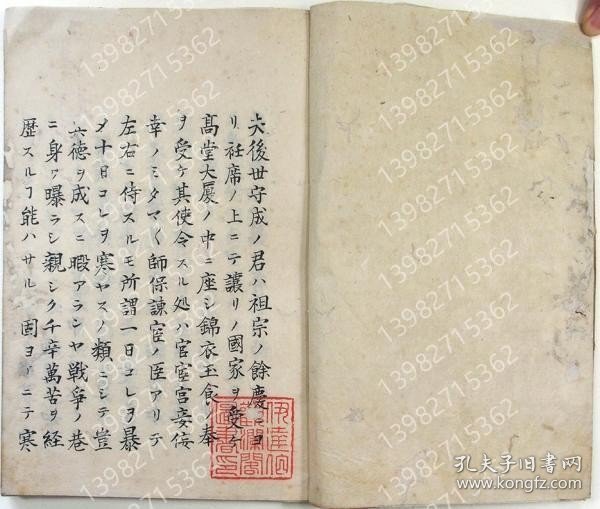 夫後世守成ノ君ハ祖宗ノ餘慶ニヨ
リ衽席ノ上ニテ讓リノ國家ヲ受ケ
高堂大厦ノ中ニ座シ錦衣玉食ノ奉
ヲ受ケ其使令スル処ハ官宦宮妾侫
幸ノミタマ〱師保諫官ノ臣アリテ
左右ニ侍スルモ所謂一日コレヲ暴
メ十日コレヲ寒ヤスノ類ニシテ豈
其徳ヲ成スニ暇アランヤ戦爭ノ巷
ニ身ヲ曝ラシ親シク千辛萬苦ヲ経
歴スルヿ能ハサル固ヨリニテ寒
伊達伯
觀瀾閣
圖書印
13982715362
孔夫子旧书网
www.kongfz.com